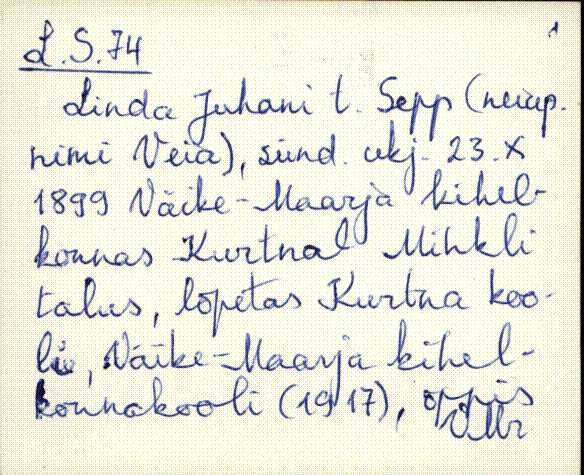 1
L.S.74
Linda Juhani t. Sepp (neiup.
nimi Veia), sünd. ukj. 23.X
1899 Väike-Maarja kihel-
konnas Kurtna Mihkli
talus, lõpetas Kurtna koo-
li, Väike-Maarja kihel-
konnakooli (1917), õppis